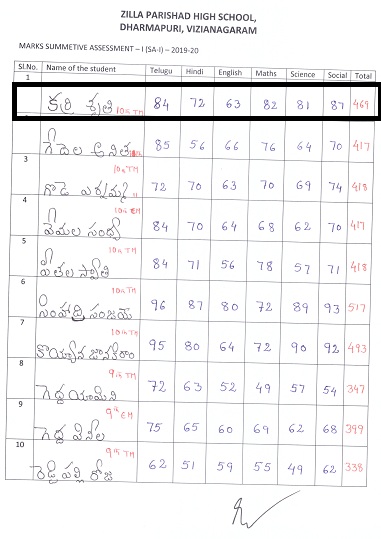 ZILLA PARISHAD HIGH SCHOOL,
DHARMAPURI, VIZIANAGARAM
MARKS SUMMETIVE ASSESSMENT – I (SA-I) – 2019-20
Sl.No. Name of the student Telugu Hindi English Maths Science Social Total
1 కర్రి శృతి 10th TM 84 72 63 82 81 87 469
గెదెల అనిత 85 56 66 76 64 70 417
3 10th TM 72 70 63 70 69 74 418
4 10th EM 84 70 64 68 62 70 417
5 10th TM 84 71 56 78 57 71 418
6 సింహాద్రి సంజయ్ 10th TM 96 87 80 72 89 93 517
7 కొయ్యాన జానకిరాం 10th TM 95 80 64 72 90 92 493
8 గెద్ద యామిని 9th TM 72 63 52 49 57 54 347
9 గెద్ద వినీల 9th EM 75 65 60 69 62 68 399
10 రెడ్డిపల్లి రోజా 9th TM 62 51 59 55 49 62 338